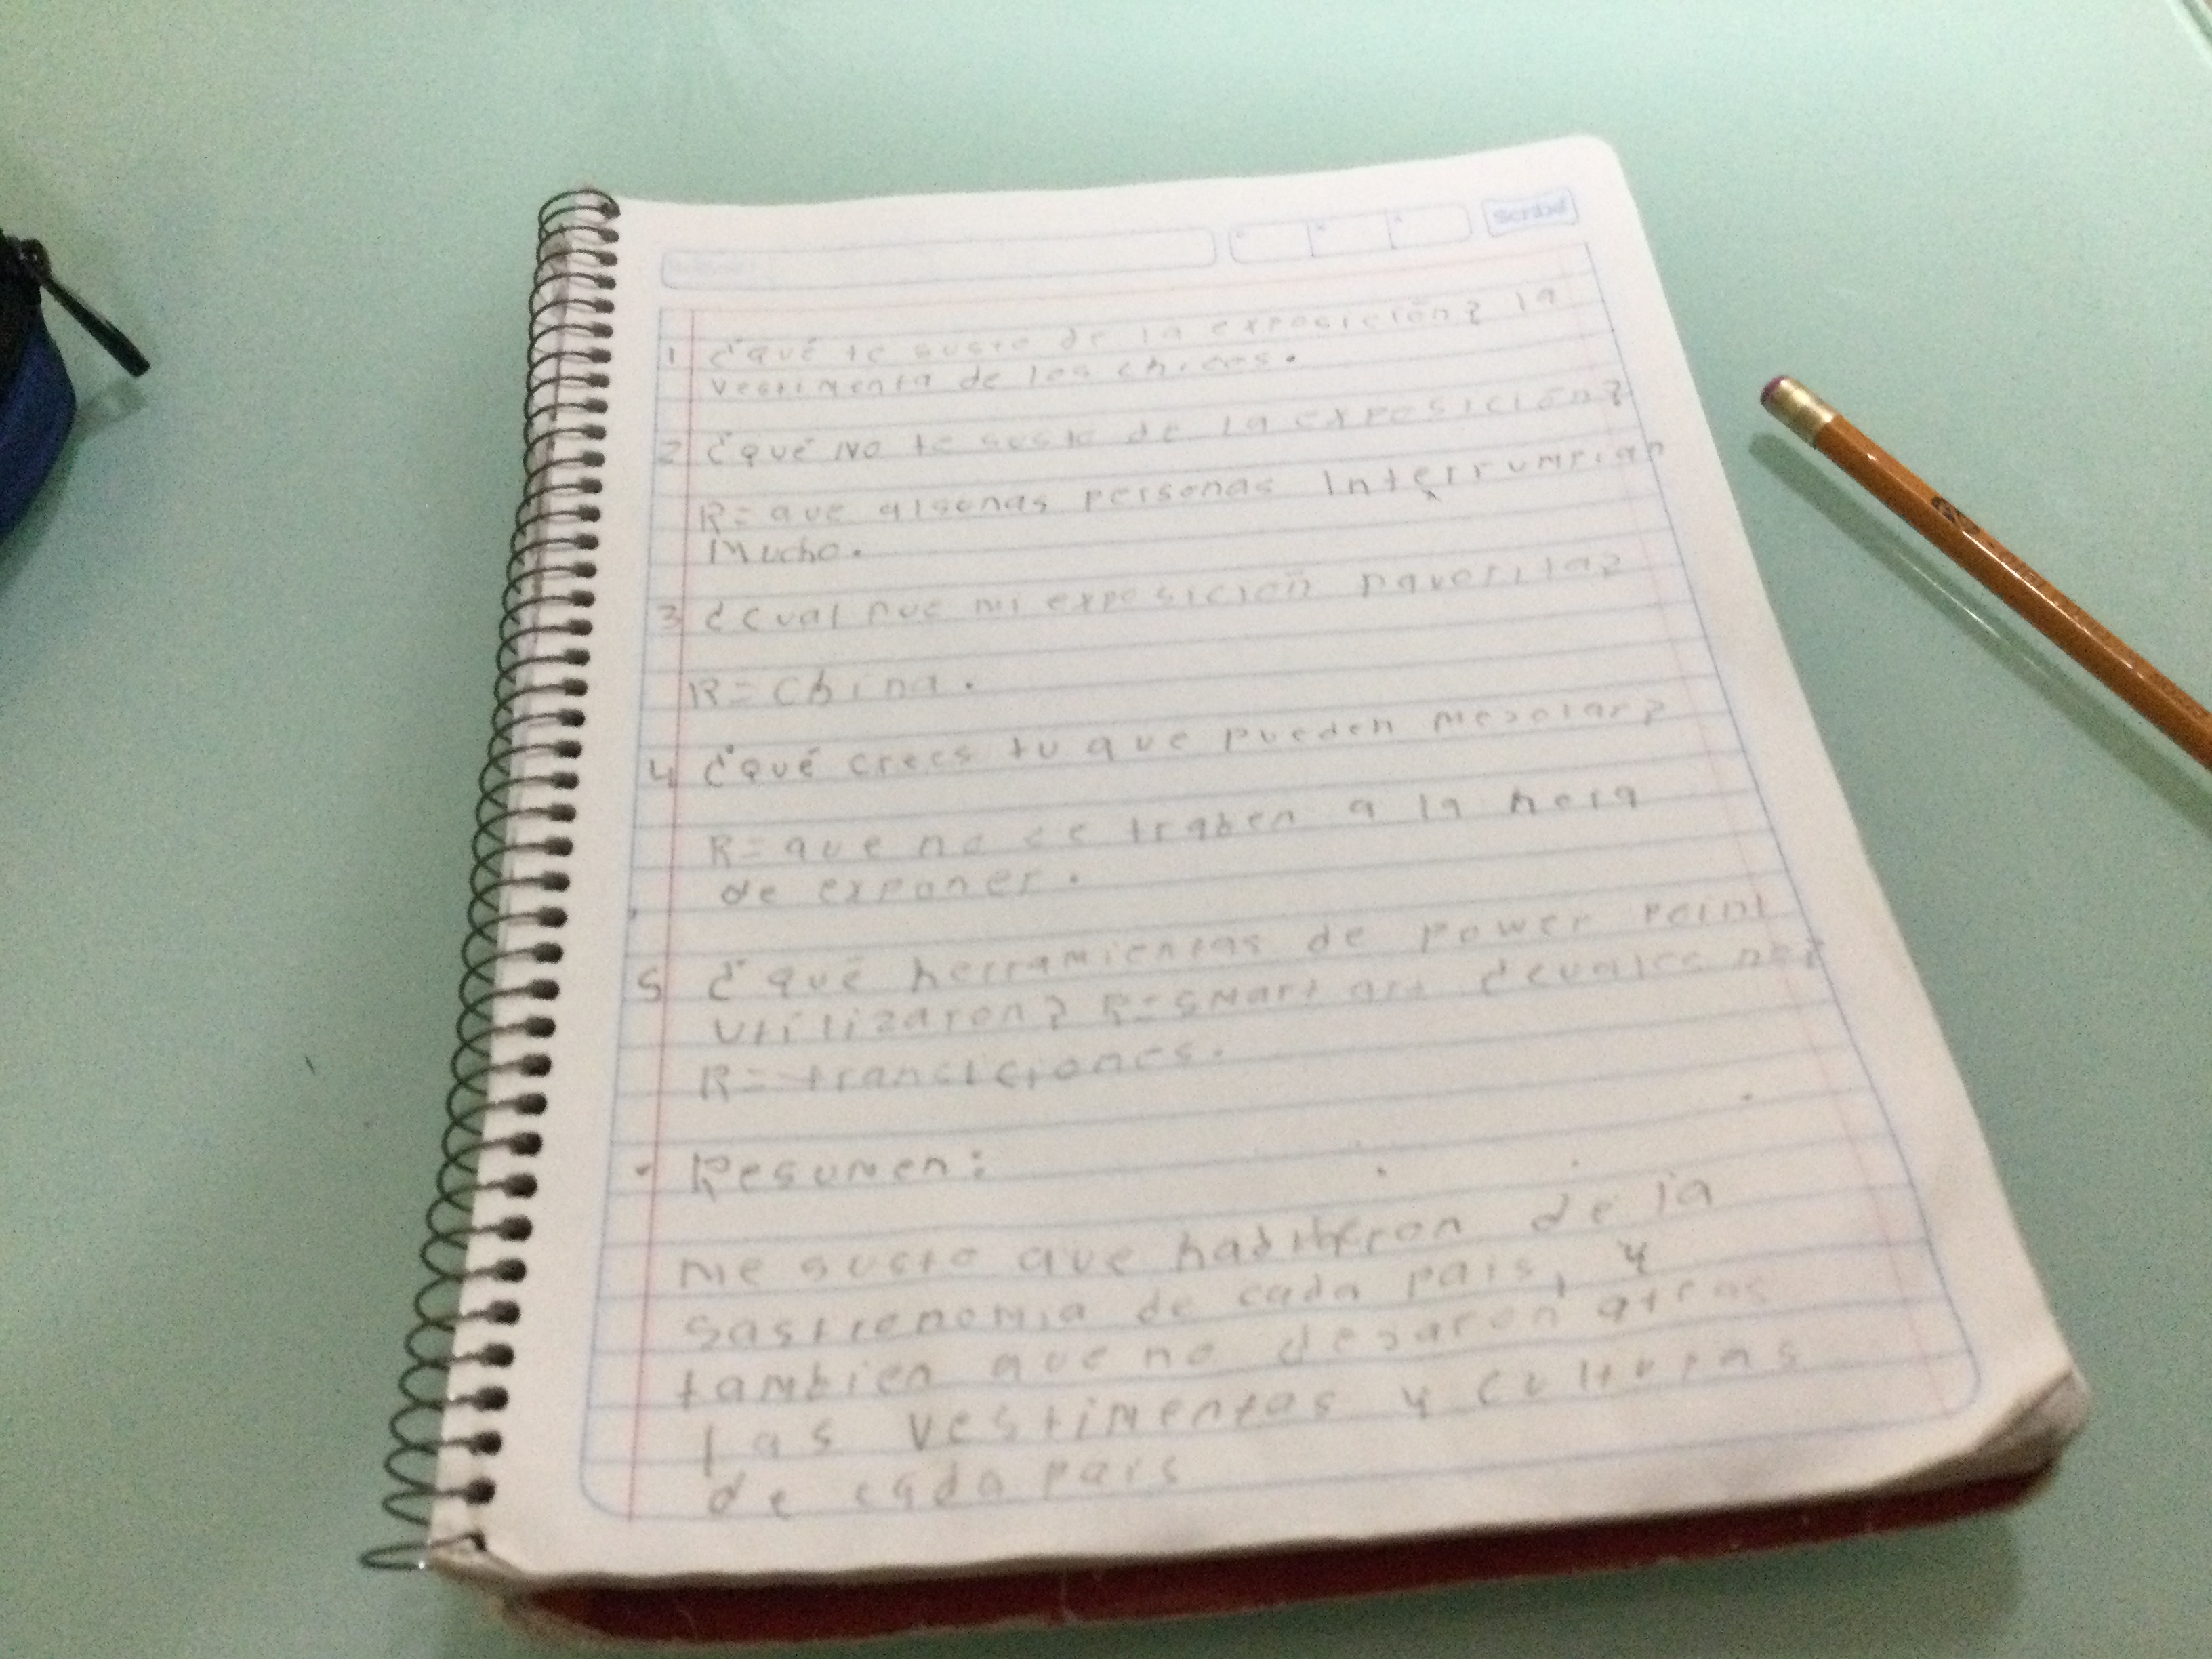 Scribe
1 ¿qué te gusto de la exposición? la
vestimenta de los chicos.
2 ¿qué no te gusto de la exposición?
R= que algunas personas Interrumpian
Mucho.
3 ¿cual fue mi exposición favorita?
R= China.
4 ¿qué crees tu que pueden mejorar?
R= que no se traben a la hora
de exponer.
5 ¿qué herramientas de power point
utilizaron? R= smart art ¿cuales no?
R= transiciones.
• Resumen:
me gusto que de la
gastronomia de cada pais, y
tambien que no dejaron atras
las vestimentas y culturas
de cada pais